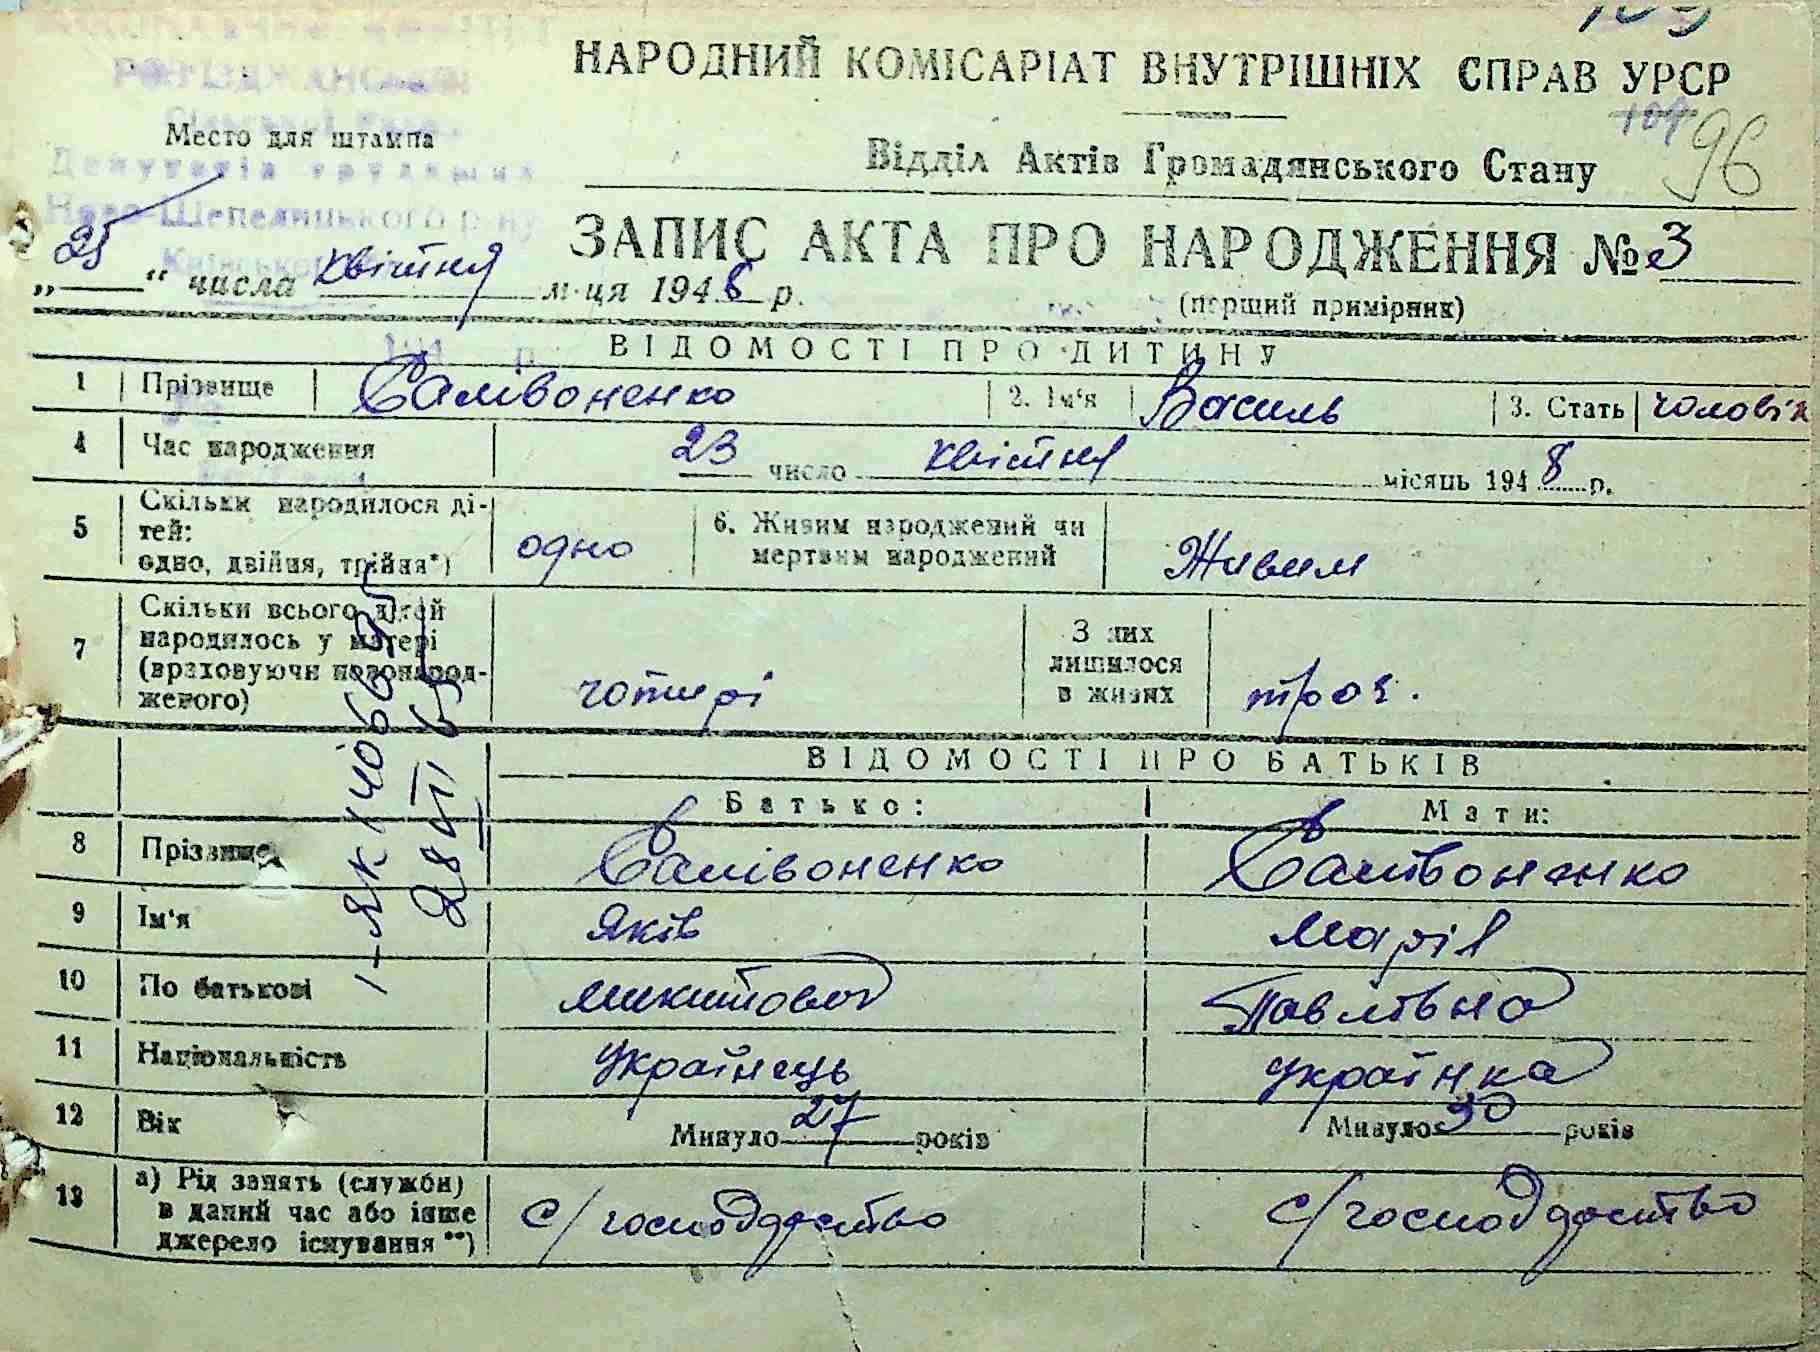 НАРОДНИЙ КОМІСАРІАТ ВНУТРІШНІХ СПРАВ УРСР
109 96
Место для штампа
Відділ Актів Громадянського Стану
РОЗЇЗДЖАНСЬКОЇ
Депутатів трудящих
Ново-Шепелицького р-ну
Київської
ЗАПИС АКТА ПРО НАРОДЖЕННЯ № 3
„25“ числа квітня м-ця 1948 р.
(перший примірник)
ВІДОМОСТІ ПРО ДИТИНУ
1 Прізвище Салівоненко 2. Ім'я Василь 3. Стать чоловік
4 Час народження 23 число квітня місяць 1948 р.
5 Скільки народилося ді-
тей:
одно, двійня, трійня*) одно 6. Живим народжений чи
мертвим народжений Живим
7 Скільки всього дітей
народилось у матері
(враховуючи новонарод-
женого) чотирі З них
лишилося
в живих троє.
ВІДОМОСТІ ПРО БАТЬКІВ
Батько: Мати:
8 Прізвище Салівоненко Салівоненко
9 Ім'я Яків Марія
10 По батькові Микитович Павлівна
11 Національність Українець українка
12 Вік Минуло 27 років Минуло 30 років
13 а) Рід занять (служби)
в даний час або інше
джерело існування**) с/господарство с/господарство